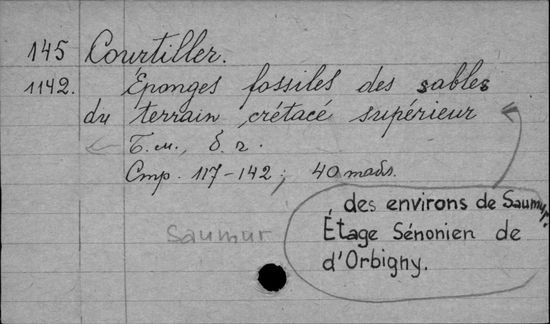 145 Courtiller.
1142. Éponges fossiles des sables
du terrain crétacé supérieur
Б. м., б. г.
Стр. 117-142; 40 табл.
, des environs de Saumur.
Saumur
Étage Sénonien de
d'Orbigny.